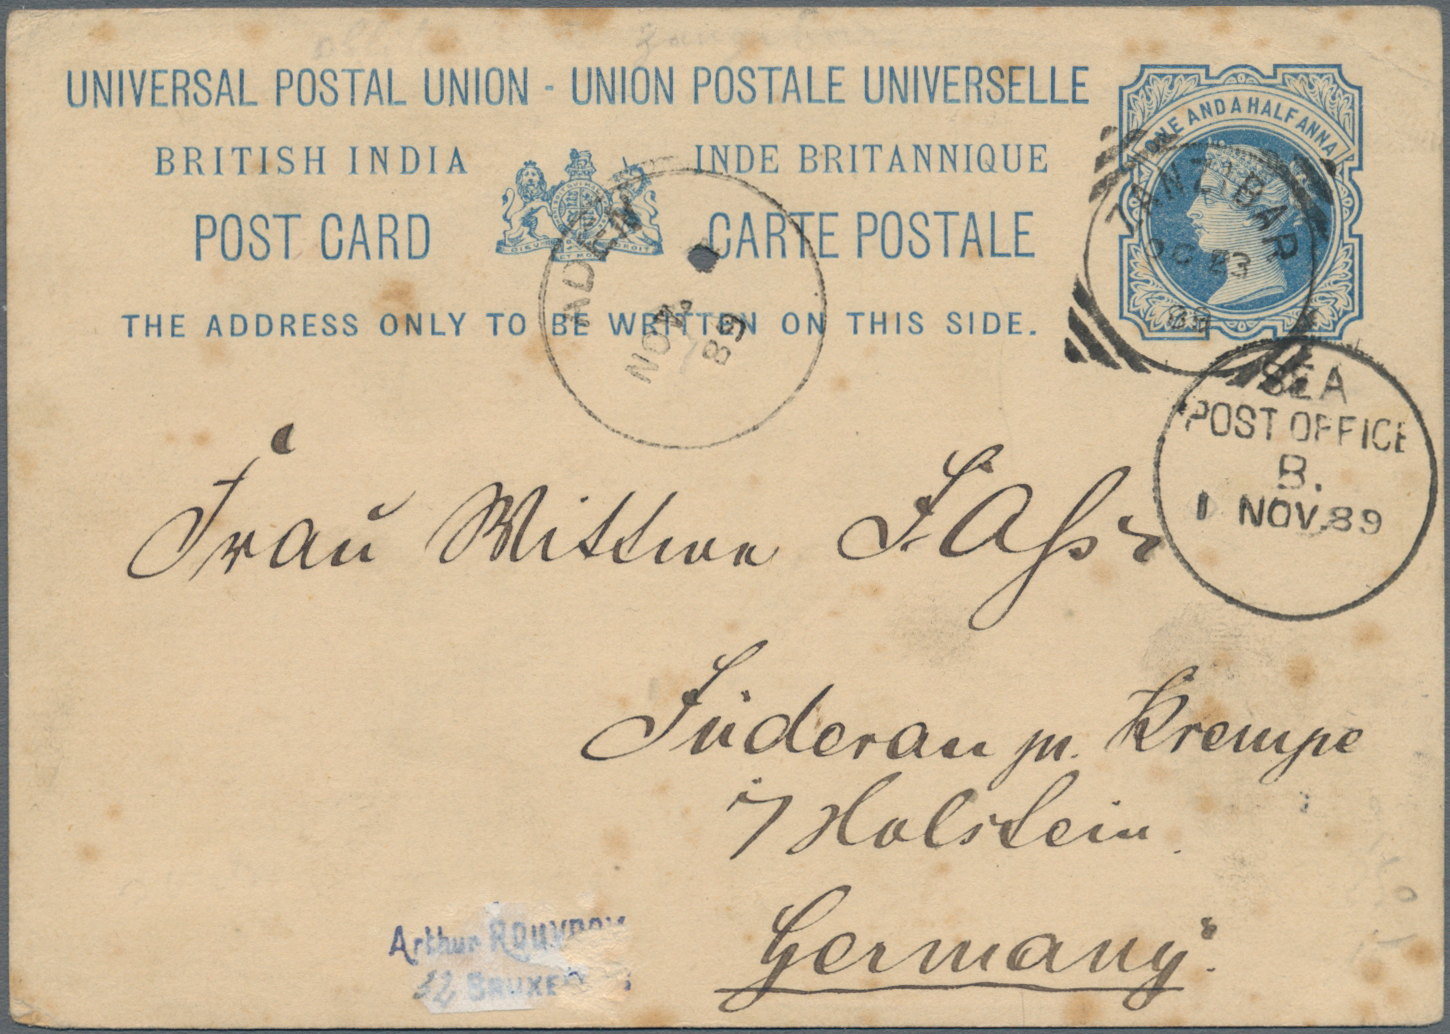 UNIVERSAL POSTAL UNION - UNION POSTALE UNIVERSELLE
BRITISH INDIA INDE BRITANNIQUE
POST CARD CARTE POSTALE
THE ADDRESS ONLY TO BE WRITTEN ON THIS SIDE.
ONE AND A HALF ANNA
ZANZIBAR
OC 23
89
ADEN
NOV.
89
SEA
POST OFFICE
B.
1 NOV. 89
Frau Wittwe
Süderau pr. Krempe
i/ Holstein.
Germany.
Arthur